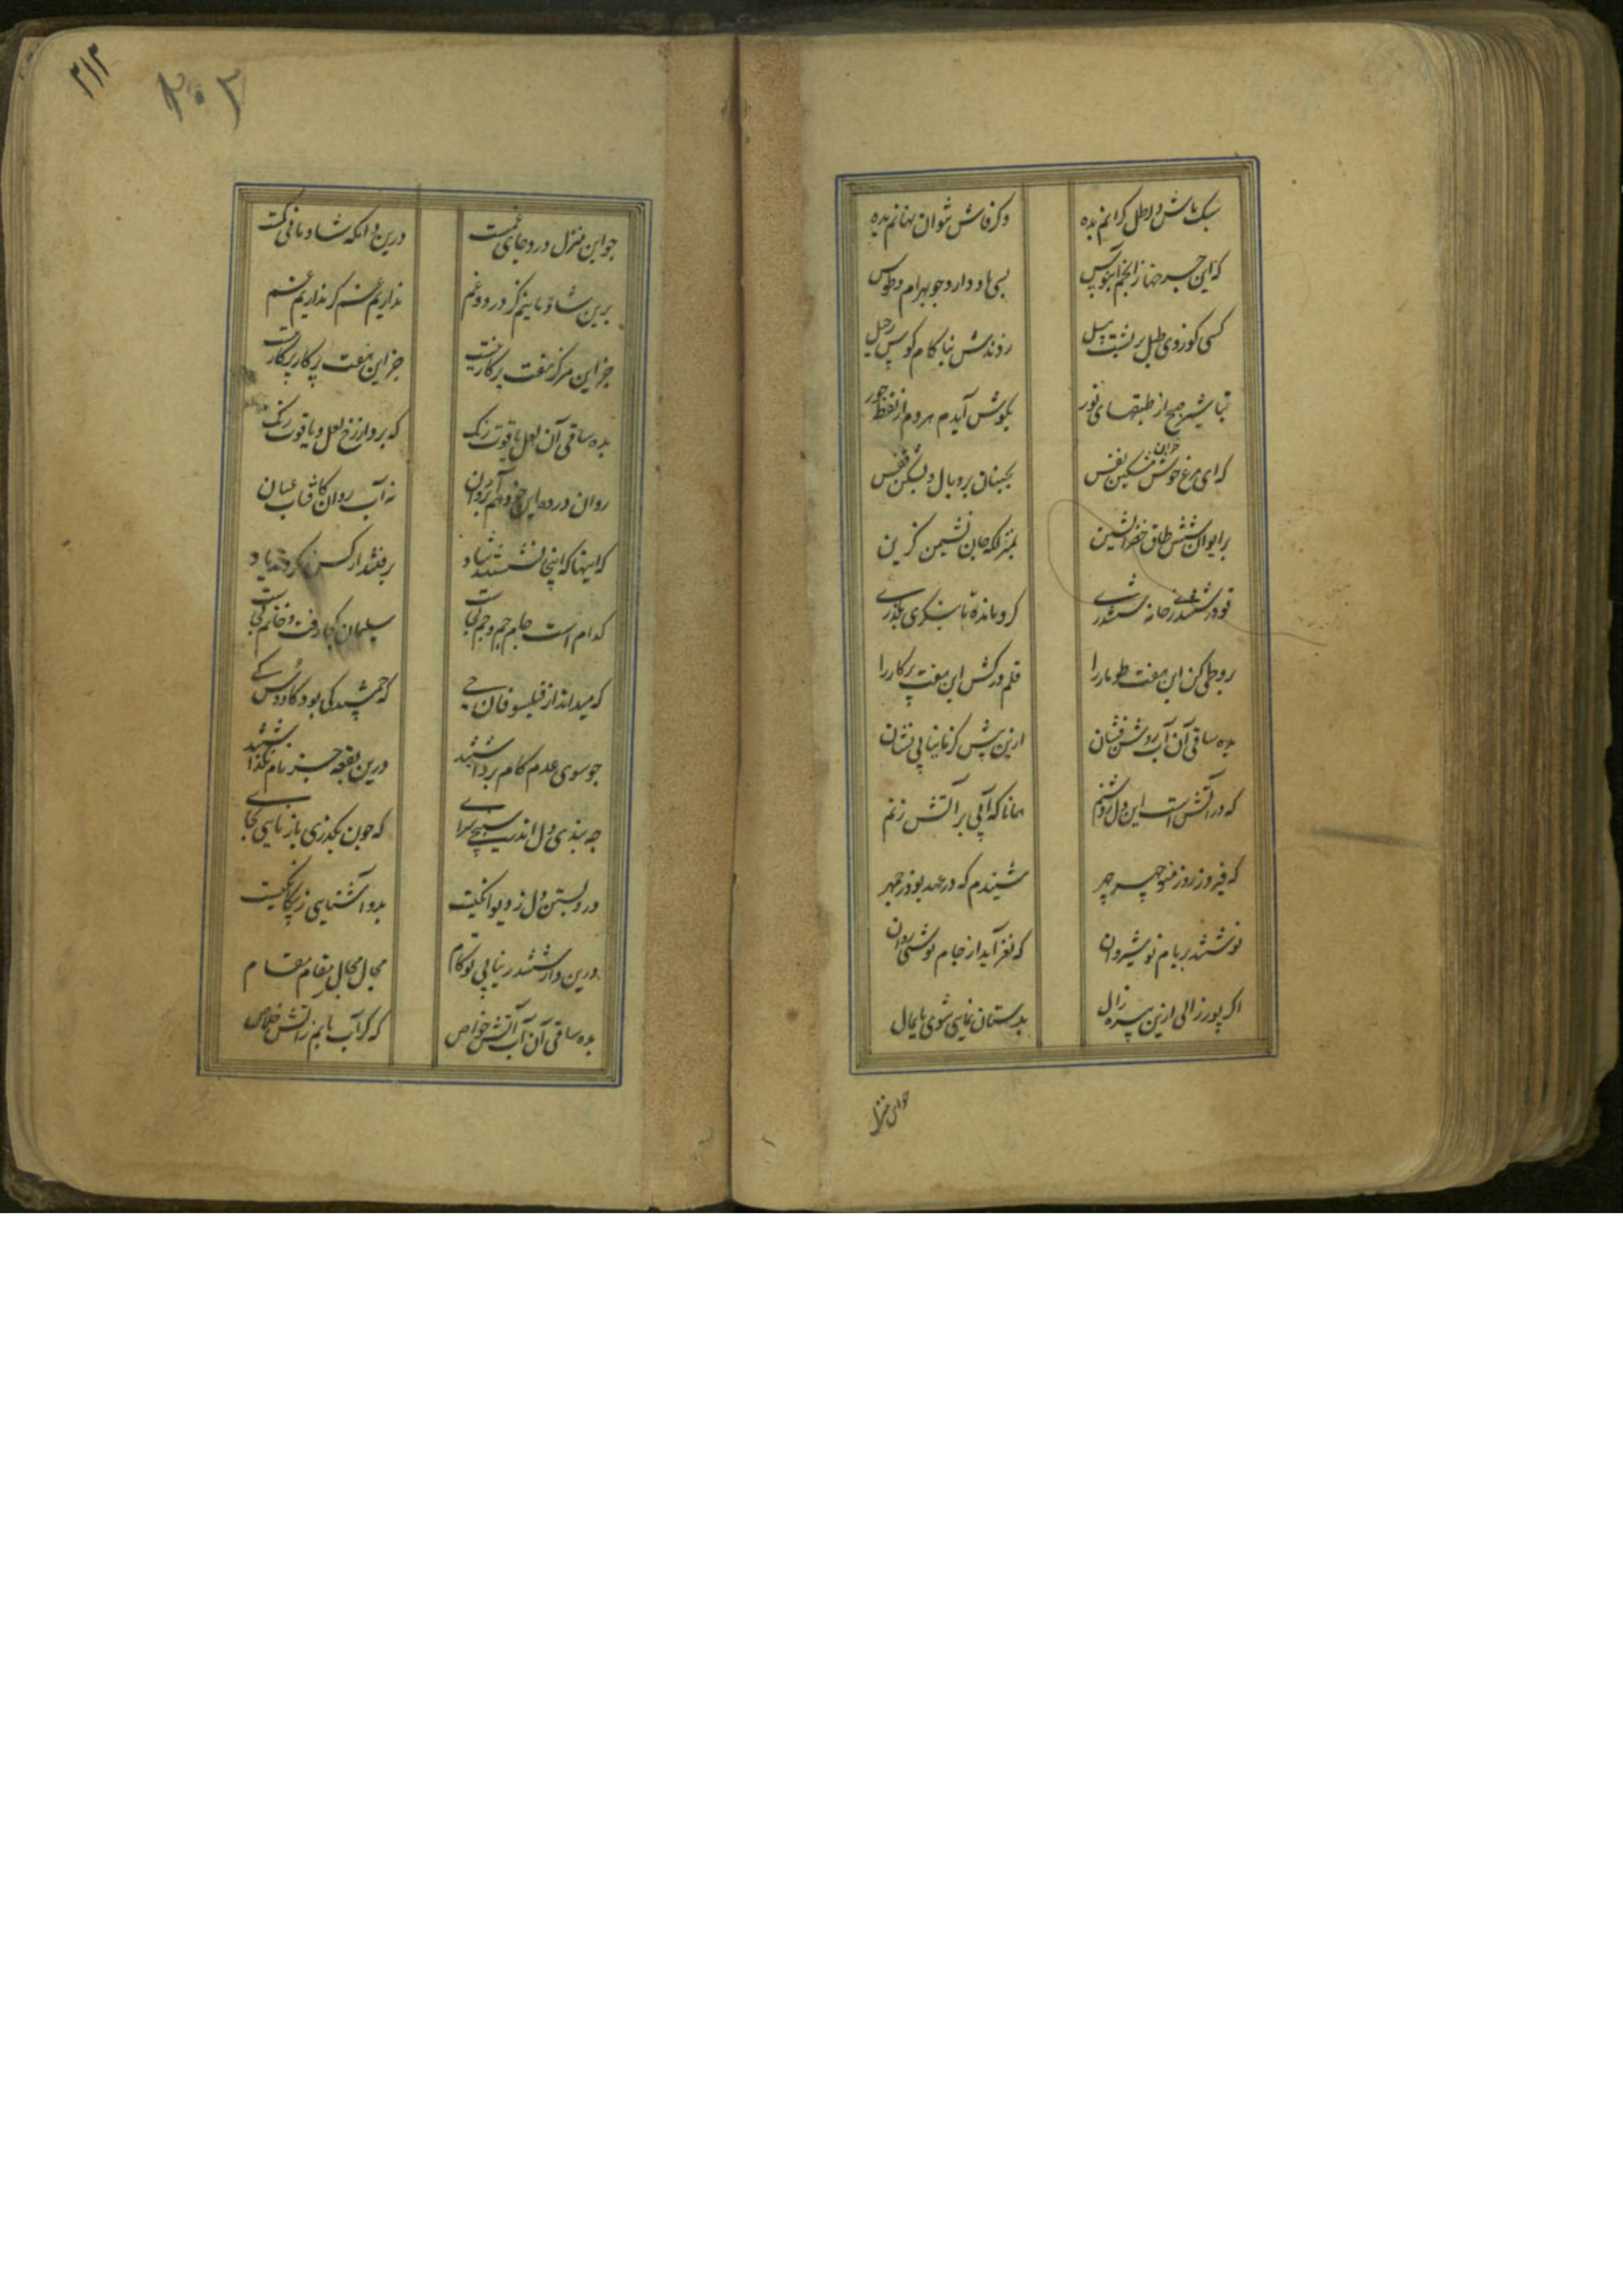 سبک باش و رطل کرانم بده وکر فاش نتوان نهانم بده
که این جرخ از انجم آبنوس بسی یاد دارد جو بهرام و طوس
کسی کو زدی طبل بر پشت پیل زدندش بناکام کوس رحیل
تباشیر صبح از طبقهای نور بکوش آیدم هر دم از لفظ حور
که ای مرغ خوش خوان شکین نفس بجنبان پر و بال و بشکن قفس
بر ایوان شش طاق خضرا نشین بمنزلکه جان نشیمن کزین
تو در ششدر خانه ششدری کرو مانده تا بنکری بکذری
برو طی کن این هفت طومار را قلم درکش این هفت پرکار را
بده ساقی آن آب روشن نشان ازین پس کزنا بیابی نشان
که در آتش است این دل روشنم همانا که آبی بر آتش زنم
که فیروز روز منوچهر چهر شنیدم که در عهد بوذرجمهر
نوشتند بر بام نوشیروان که نغز آید از جام نوشین روان
اکر پور زالی ازین پیره زال بدستان نمایی شوی پایمال
جو این منزل
۲۱۳
۲۰۲
جو این منزل درد و جای غمست درین دانکه شادمانی کمست
برین شادمانیم کز درد و غم نداریم غم کر نداریم غم
جز این مرکز هفت پرکار نیست جز این هفت پرکار پرکار نیست
بده ساقی آن لعل یاقوت رنک که برد از رخ لعل و یاقوت رنک
روان در ده این نه آب روان کافتاب عیان
که اینها که اینجا نشستند شاد برفتند از کس نکردند یاد
کدام است جام جم و جم کجاست سلیمان کجا رفت و خاتم کجاست
که میداند از فیلسوفان حی که جمشید کی بود کاوس کی
جو سوی عدم کام برداشتند درین بقعه جز نام نکذاشتند
جه بندی دل اندر سپنجی سرای که جون بکذری باز نایی بجای
درو بستن دل ز دیوانکیست بدو آشنایی ز بیکانکیست
درین دار ششدر نیابی تو کام مجال مجال و مقام مقام
بده ساقی آن آب آتش خواص که کر آب یابم ز آتش خلاص